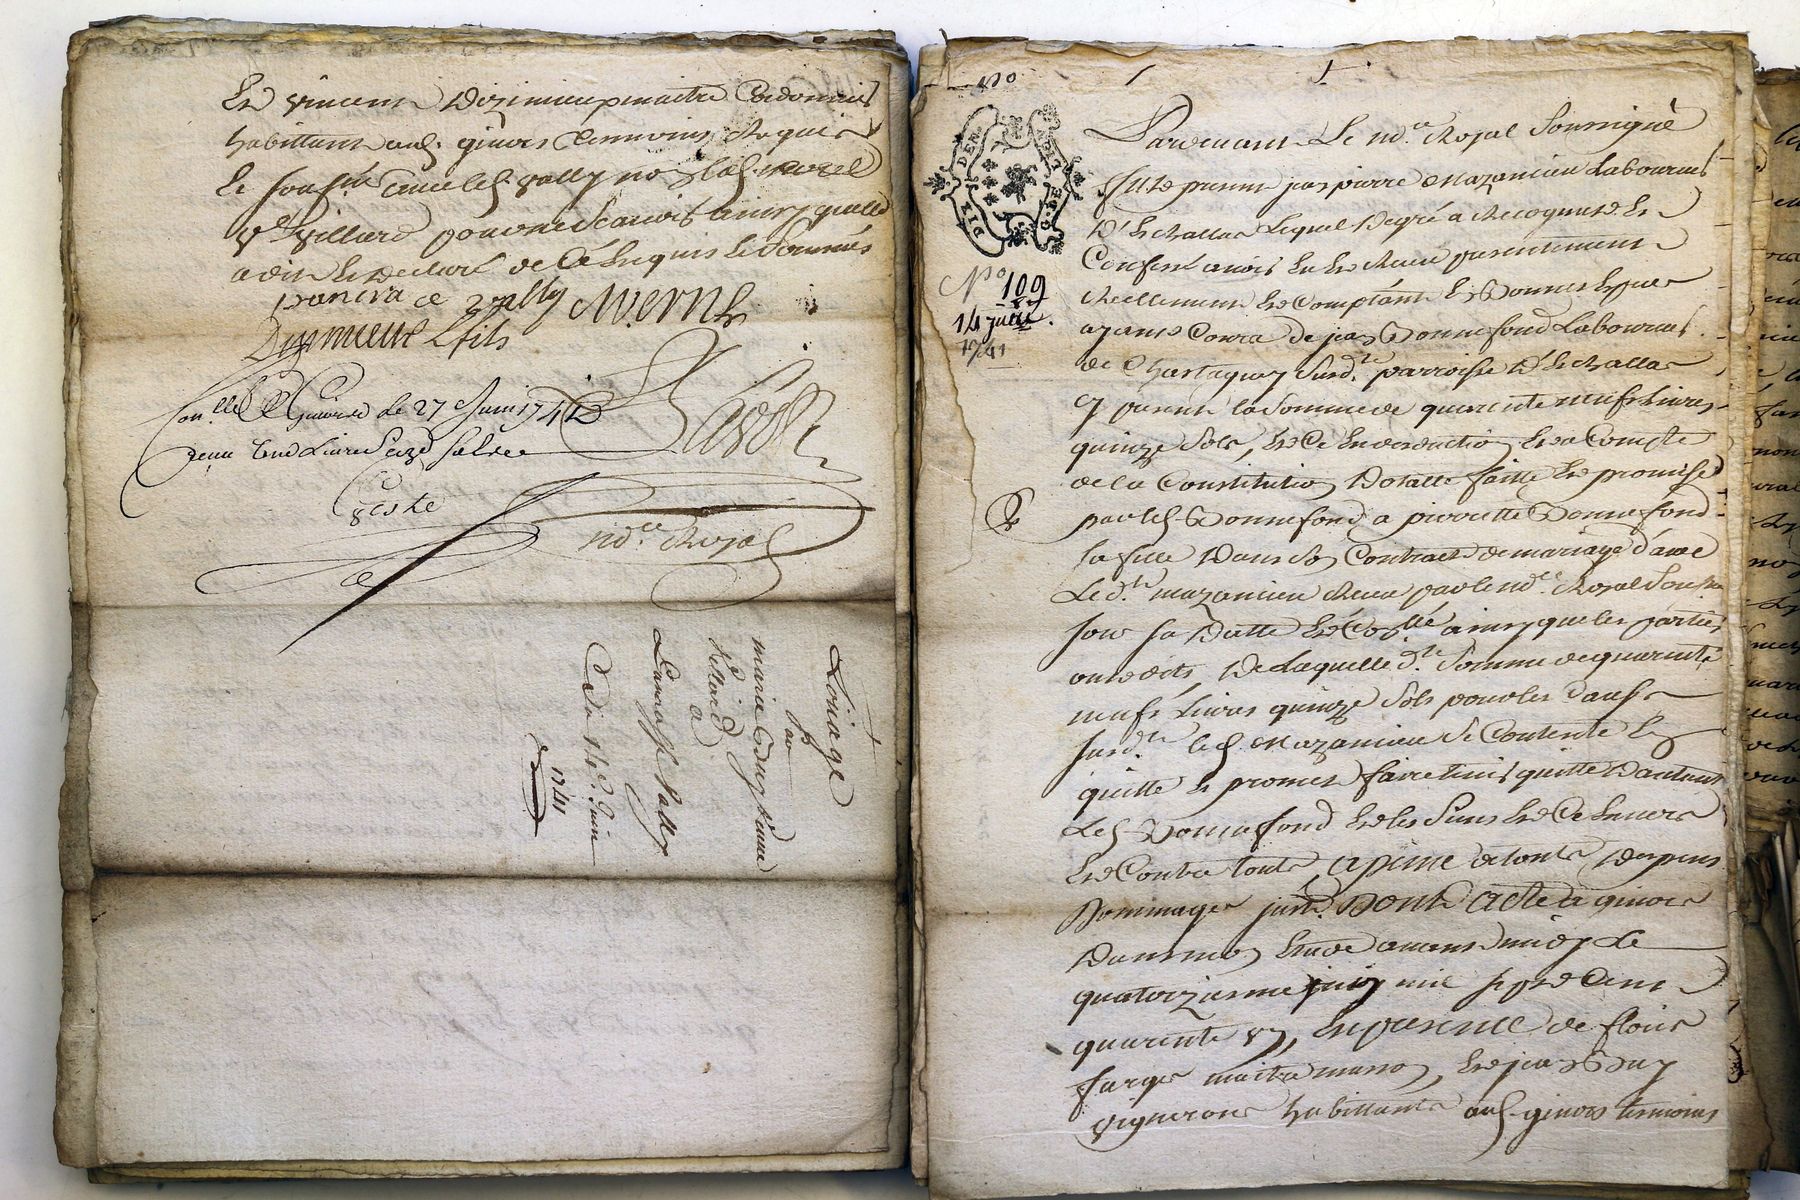 Et Vincent Dezimieu maitre Cordonnier
habittant aud. givors temoins requis
Le sousne avec led. Vally no lad. morel
Ve Villard pour ne scavoir ainsy quelle
a dit et declaré de ce Enquis et Sommés
ce Vally M. Verne
Dezimieux fils
Conllé a Givord le 27 Juin 1741
Reçu Livres Seize Sols
Ndre Royal
Loüage
par
marie
Villard
a
Vally
Du 14e Juin
1741
No
GDE DE LION
No 109
14 juin
1741
Pardevant Le ndre Royal Soussigné
fut present jean pierre Mazamieu Laboureur
D'Echallas Lequel De gré a Recognu Et
Confessé avoir Eu Et Receu presentement
Reellement Et Comptant En Bonnes Especes
ayants Cours de jean Bonnefond Laboureur
de Chastagnay Surdte parroisse D'Echallas
Cy present la Somme de quarente neuf Livres
quinze Sols, Et Ce En deduction Et a Compte
de la Constitution Dotalle faitte Et promise
par led. Bonnefond a pierrette Bonnefond
Sa fille Dans Son Contract de mariage d'avec
Led.t mazamieu Receu par le ndre Royal Soussné
Sous Sa Datte Et Conllé ainsy que les parties
ont dit, De Laquelle de Somme de quarente
neuf Livres quinze Sols pour les Causes
Surdtes led. Mazamieu Se Contente En
quitte Et promet faire tenir quitte Dautant
Led. Bonnefond Et les Siens Et Ce Envers
Et Contre touts, a peine de touts Depens
Dommages Dont Acte a givors
Dans mon Etude avant midy Le
quatorzieme juin mil Sept Cent
quarente un, En presence de
farge maitre masson, Et jean Guy
vigneron habittants aud. givors temoins